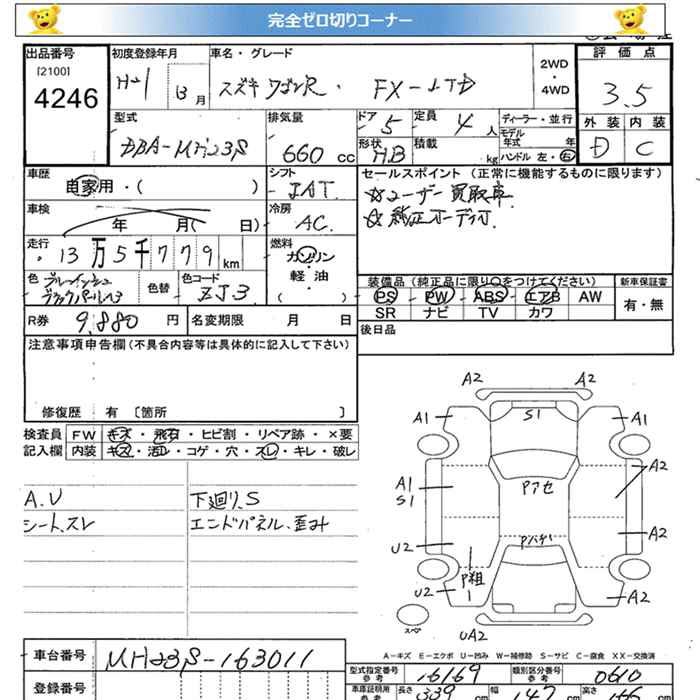 完全ゼロ切りコーナー
出品番号 初度登録年月 車名・グレード 評価点
[2100] 4246
H21 月 スズキ ワゴンR FX-LTD
2WD
・
4WD
3.5
外装 内装
D C
型式 排気量 ドア 定員 ディーラー・並行
DBA-MH23S 660 cc 5 4 人 モデル年式 年
形状 積載 ハンドル 左・右
HB kg
車歴 シフト セールスポイント (正常に機能するものに限ります)
自家用・( ) ☆ユーザー買取車
車検 冷房 ☆純正オーディオ
年 月( 日) AC
走行 燃料
13万5千779km ガソリン
軽・油
( )
色 色替 色コード
ZJ3
装備品 (純正品に限り○をつけてください) 新車保証書
PS PW ABS エアB AW 有・無
SR ナビ TV カワ
R券 9,880 円 名変期限 月 日 後日品
注意事項申告欄 (不具合内容等は具体的に記入して下さい)
修復歴 有 〔箇所 〕
検査員 FW キズ・飛石・ヒビ割・リペア跡・×要
記入欄 内装 キズ・汚レ・コゲ・穴・スレ・キレ・破レ
A.U 下廻り.S
シート.スレ エンドパネル.歪み
A2 A2
A1 S1 A1
A2
A1 Pアセ
S1
Pハゲ A2
U2
P粗
U2 A2
スペア UA2
A-キズ E-エクボ U-凹み W-補修跡 S-サビ C-腐食 XX-交換済
車台番号 MH23S-163011
型式指定番号 参考 16169 類別区分番号 参考 0610
登録番号 車庫証明用 参考 長さ 339 cm 幅 147 cm 高さ